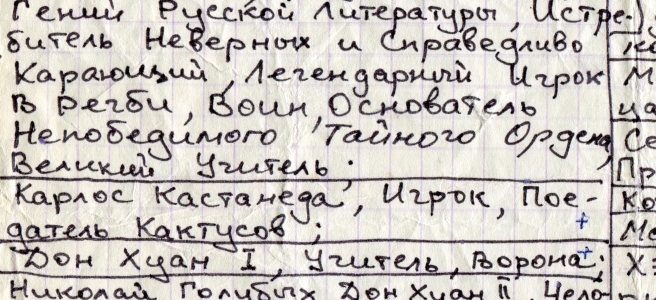 Гений Русской Литературы, Истре-
битель Неверных и Справедливо
Карающий, Легендарный Игрок
в Регби, Воин, Основатель
Непобедимого Тайного Ордена,
Великий Учитель;
Карлос Кастанеда, Игрок, Пое-
датель Кактусов;
Дон Хуан I, Учитель, Ворона;
Николай Голубых Дон Хуан II, Чело-